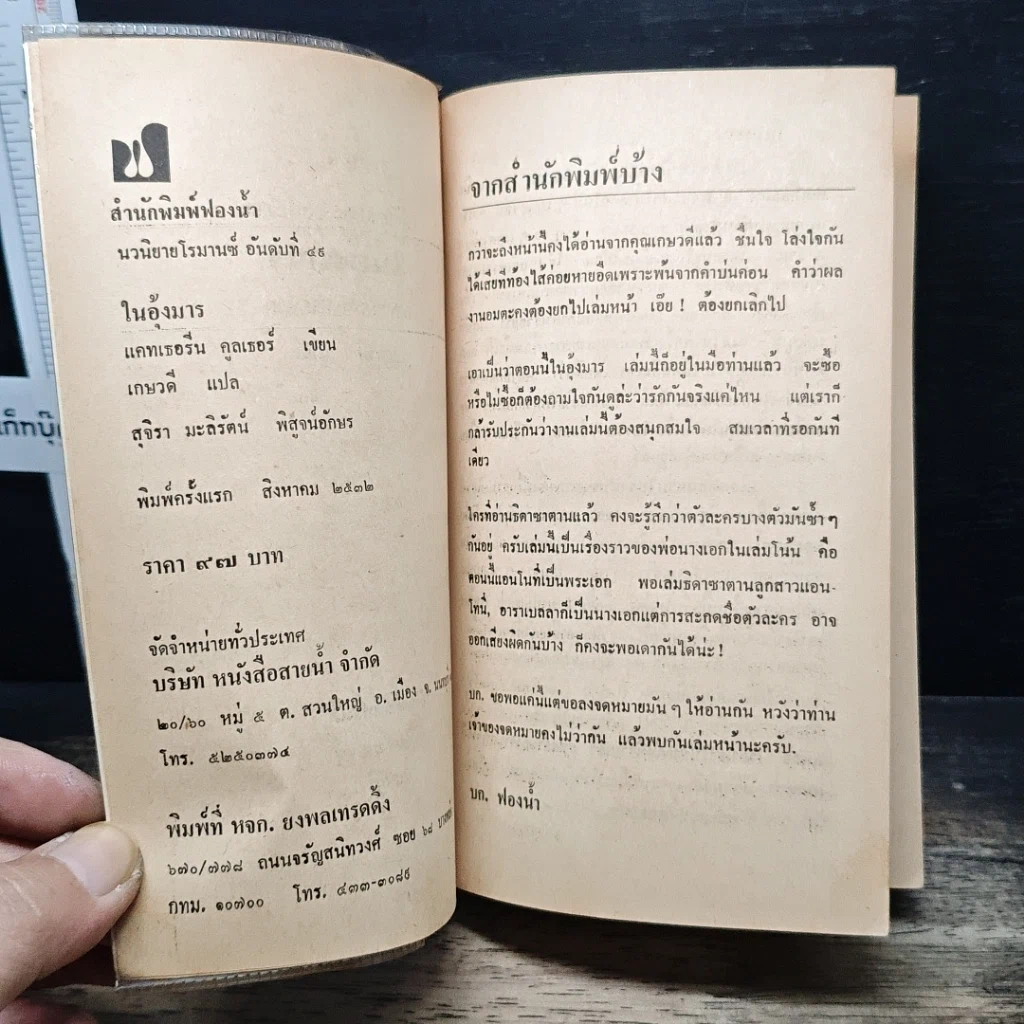 สำนักพิมพ์ฟองน้ำ
นวนิยายโรมานซ์ อันดับที่ ๔๙
ในอุ้งมาร
แคทเธอรีน คูลเธอร์ เขียน
เกษวดี แปล
สุจิรา มะลิรัตน์ พิสูจน์อักษร
พิมพ์ครั้งแรก สิงหาคม ๒๕๓๒
ราคา ๙๗ บาท
จัดจำหน่ายทั่วประเทศ
บริษัท หนังสือสายน้ำ จำกัด
๒๐/๖๐ หมู่ ๕ ต. สวนใหญ่ อ. เมือง จ.
โทร. ๕๒๕๐๓๗๔
พิมพ์ที่ หจก. ยงพลเทรดดิ้ง
๖๗๐/๗๗๘ ถนนจรัญสนิทวงศ์ ซอย ๖๘
กทม. ๑๐๗๐๐ โทร. ๔๓๓-๓๐๘๙
จากสำนักพิมพ์บ้าง
กว่าจะถึงหน้านี้คงได้อ่านจากคุณเกษวดีแล้ว ชื่นใจ โล่งใจกัน
ได้เสียทีท้องไส้ค่อยหายอืดเพราะพ้นจากคำบ่นค่อน คำว่าผล
งานอมตะคงต้องยกไปเล่มหน้า เอ๊ย ! ต้องยกเลิกไป
เอาเป็นว่าตอนนี้ในอุ้งมาร เล่มนี้ก็อยู่ในมือท่านแล้ว จะซื้อ
หรือไม่ซื้อก็ต้องถามใจกันดูล่ะว่ารักกันจริงแค่ไหน แต่เราก็
กล้ารับประกันว่างานเล่มนี้ต้องสนุกสมใจ สมเวลาที่รอกันที
เดียว
ใครที่อ่านธิดาซาตานแล้ว คงจะรู้สึกว่าตัวละครบางตัวมันซ้ำ ๆ
กันอยู่ ครับเล่มนี้เป็นเรื่องราวของพ่อนางเอกในเล่มโน้น คือ
ตอนนี้แอนโนที่เป็นพระเอก พอเล่มธิดาซาตานลูกสาวแอน-
โทนี่, อาราเบลลาก็เป็นนางเอกแต่การสะกดชื่อตัวละคร อาจ
ออกเสียงผิดกันบ้าง ก็คงจะพอเดากันได้น่ะ !
บก. ขอพอแค่นี้แต่ขอลงจดหมายมัน ๆ ให้อ่านกัน หวังว่าท่าน
เจ้าของจดหมายคงไม่ว่ากัน แล้วพบกันเล่มหน้านะครับ.
บก. ฟองน้ำ